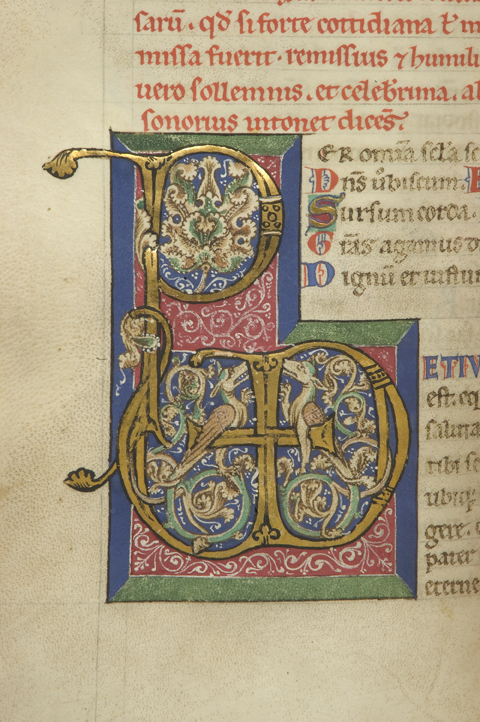 sarū. qđ si forte cottidiana t̄ m
missa fuerit. remissius ⁊ humili
uero sollemnis. et celebrima. al
sonorius intonet dicēs.
P ER om̄a scl̄a sc
Dn̄s uobiscum. E
Sursum corda.
G r̄as agamus d
Dignū et iustu
VD ETIU
est. eq
saluta
tibi se
ubiq;
gere. 
pater
eterne